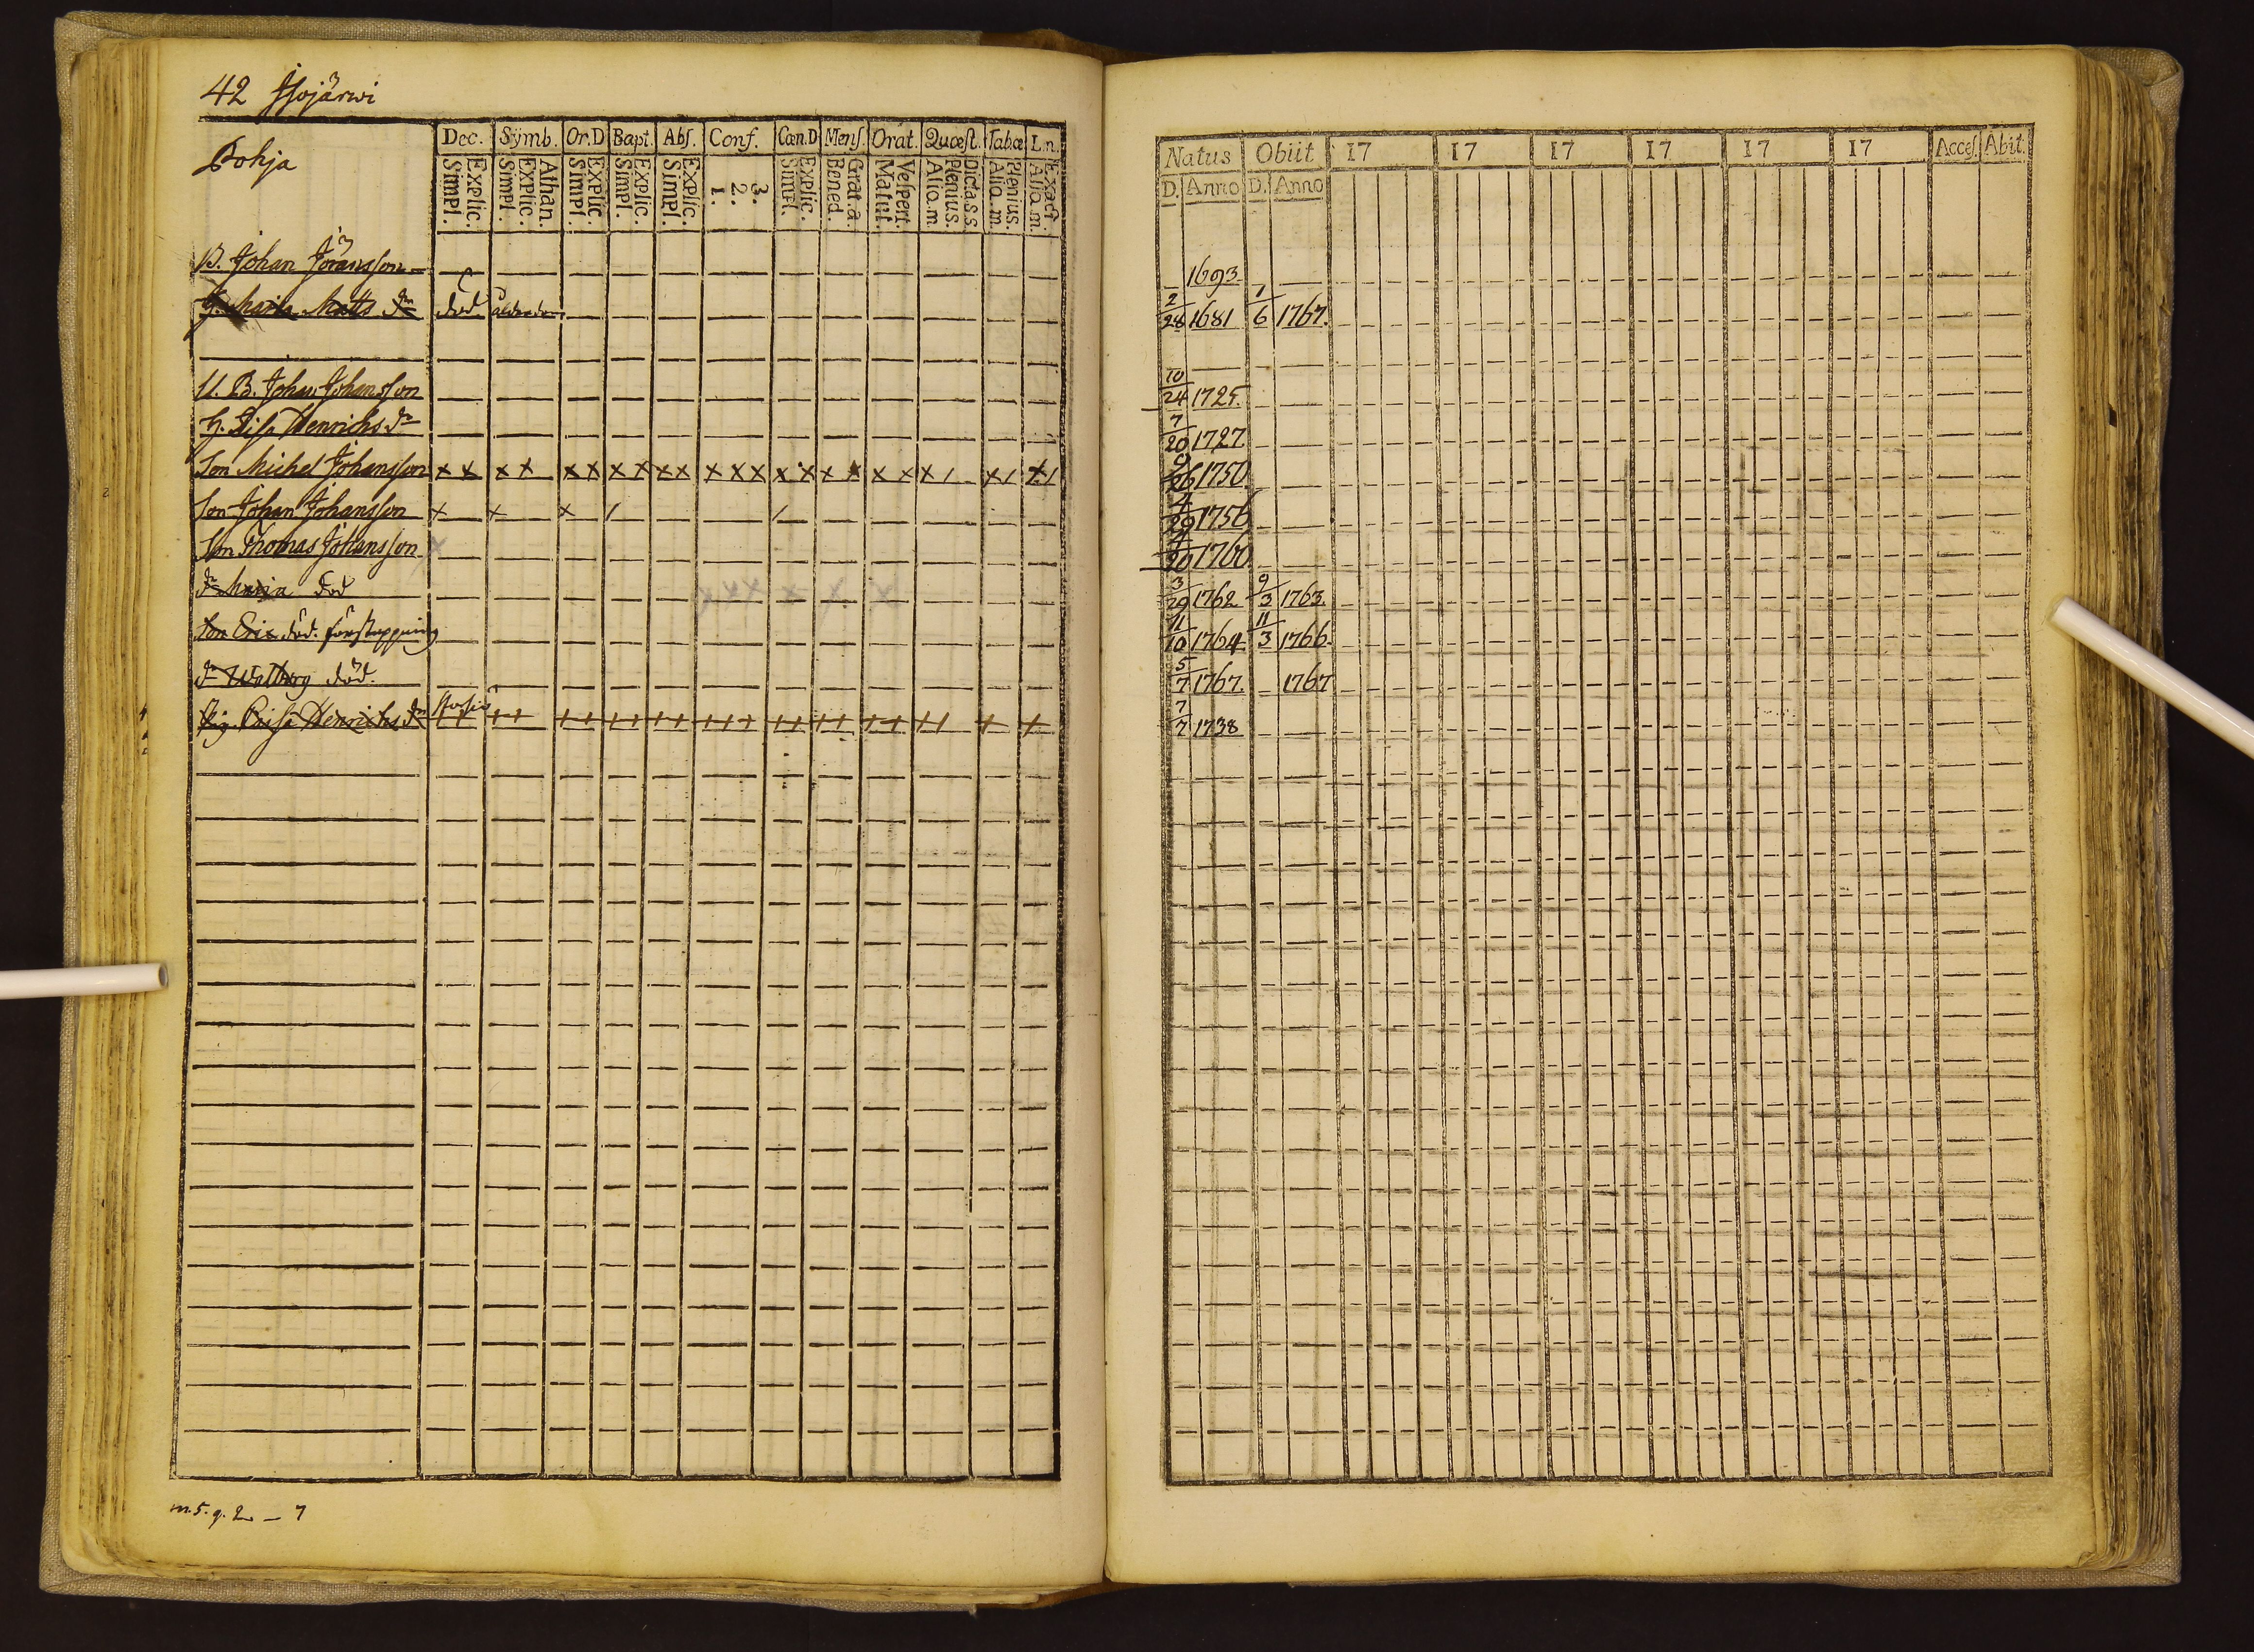 42 Isojärwi
Pohja
Dec. Symb. Or.D Bapt. Abſ. Conf. Cœn.D Menſ. Orat. Quœſt. Tab.œ L.n.
Simpl. Explic. Simpl. Explic. Athan. Simpl. Explic. Simpl. Explic. Simpl. Explic. 1. 2. 3. Simpl. Explic. Bened. Grat.a. Matut. Veſpert. Alio.m. Plenius. Dicta.s.s Alio.m Plenius. Alio.m Exact.
B. Johan Jöransson
H. Maria Matts dr död ålderdom
U. B. Johan Johansson
H. Lisa Henrichs dr
Son Michel Johansson x x x x x x x x x x x x x x x x x x x x / x / x /
Son Johan Johansson x x x / /
Son Thomas Johansson x
dr Maria död
Son Eric död. förstoppning
dr Walborg död.
Pig. Caisa Henrichs dr
m. 5. q. 2 — 7
Natus Obiit 17 17 17 17 17 17 Acceſ. Abit.
D. Anno D. Anno
1693
2/28 1681 1/6 1767.
10/24 1725.
7/20 1727
9/26 1750.
4/29 1756
4/20 1760
3/29 1762 9/3 1763.
11/10 1764 11/3 1766.
5/7 1767. 1767
7/7 1738